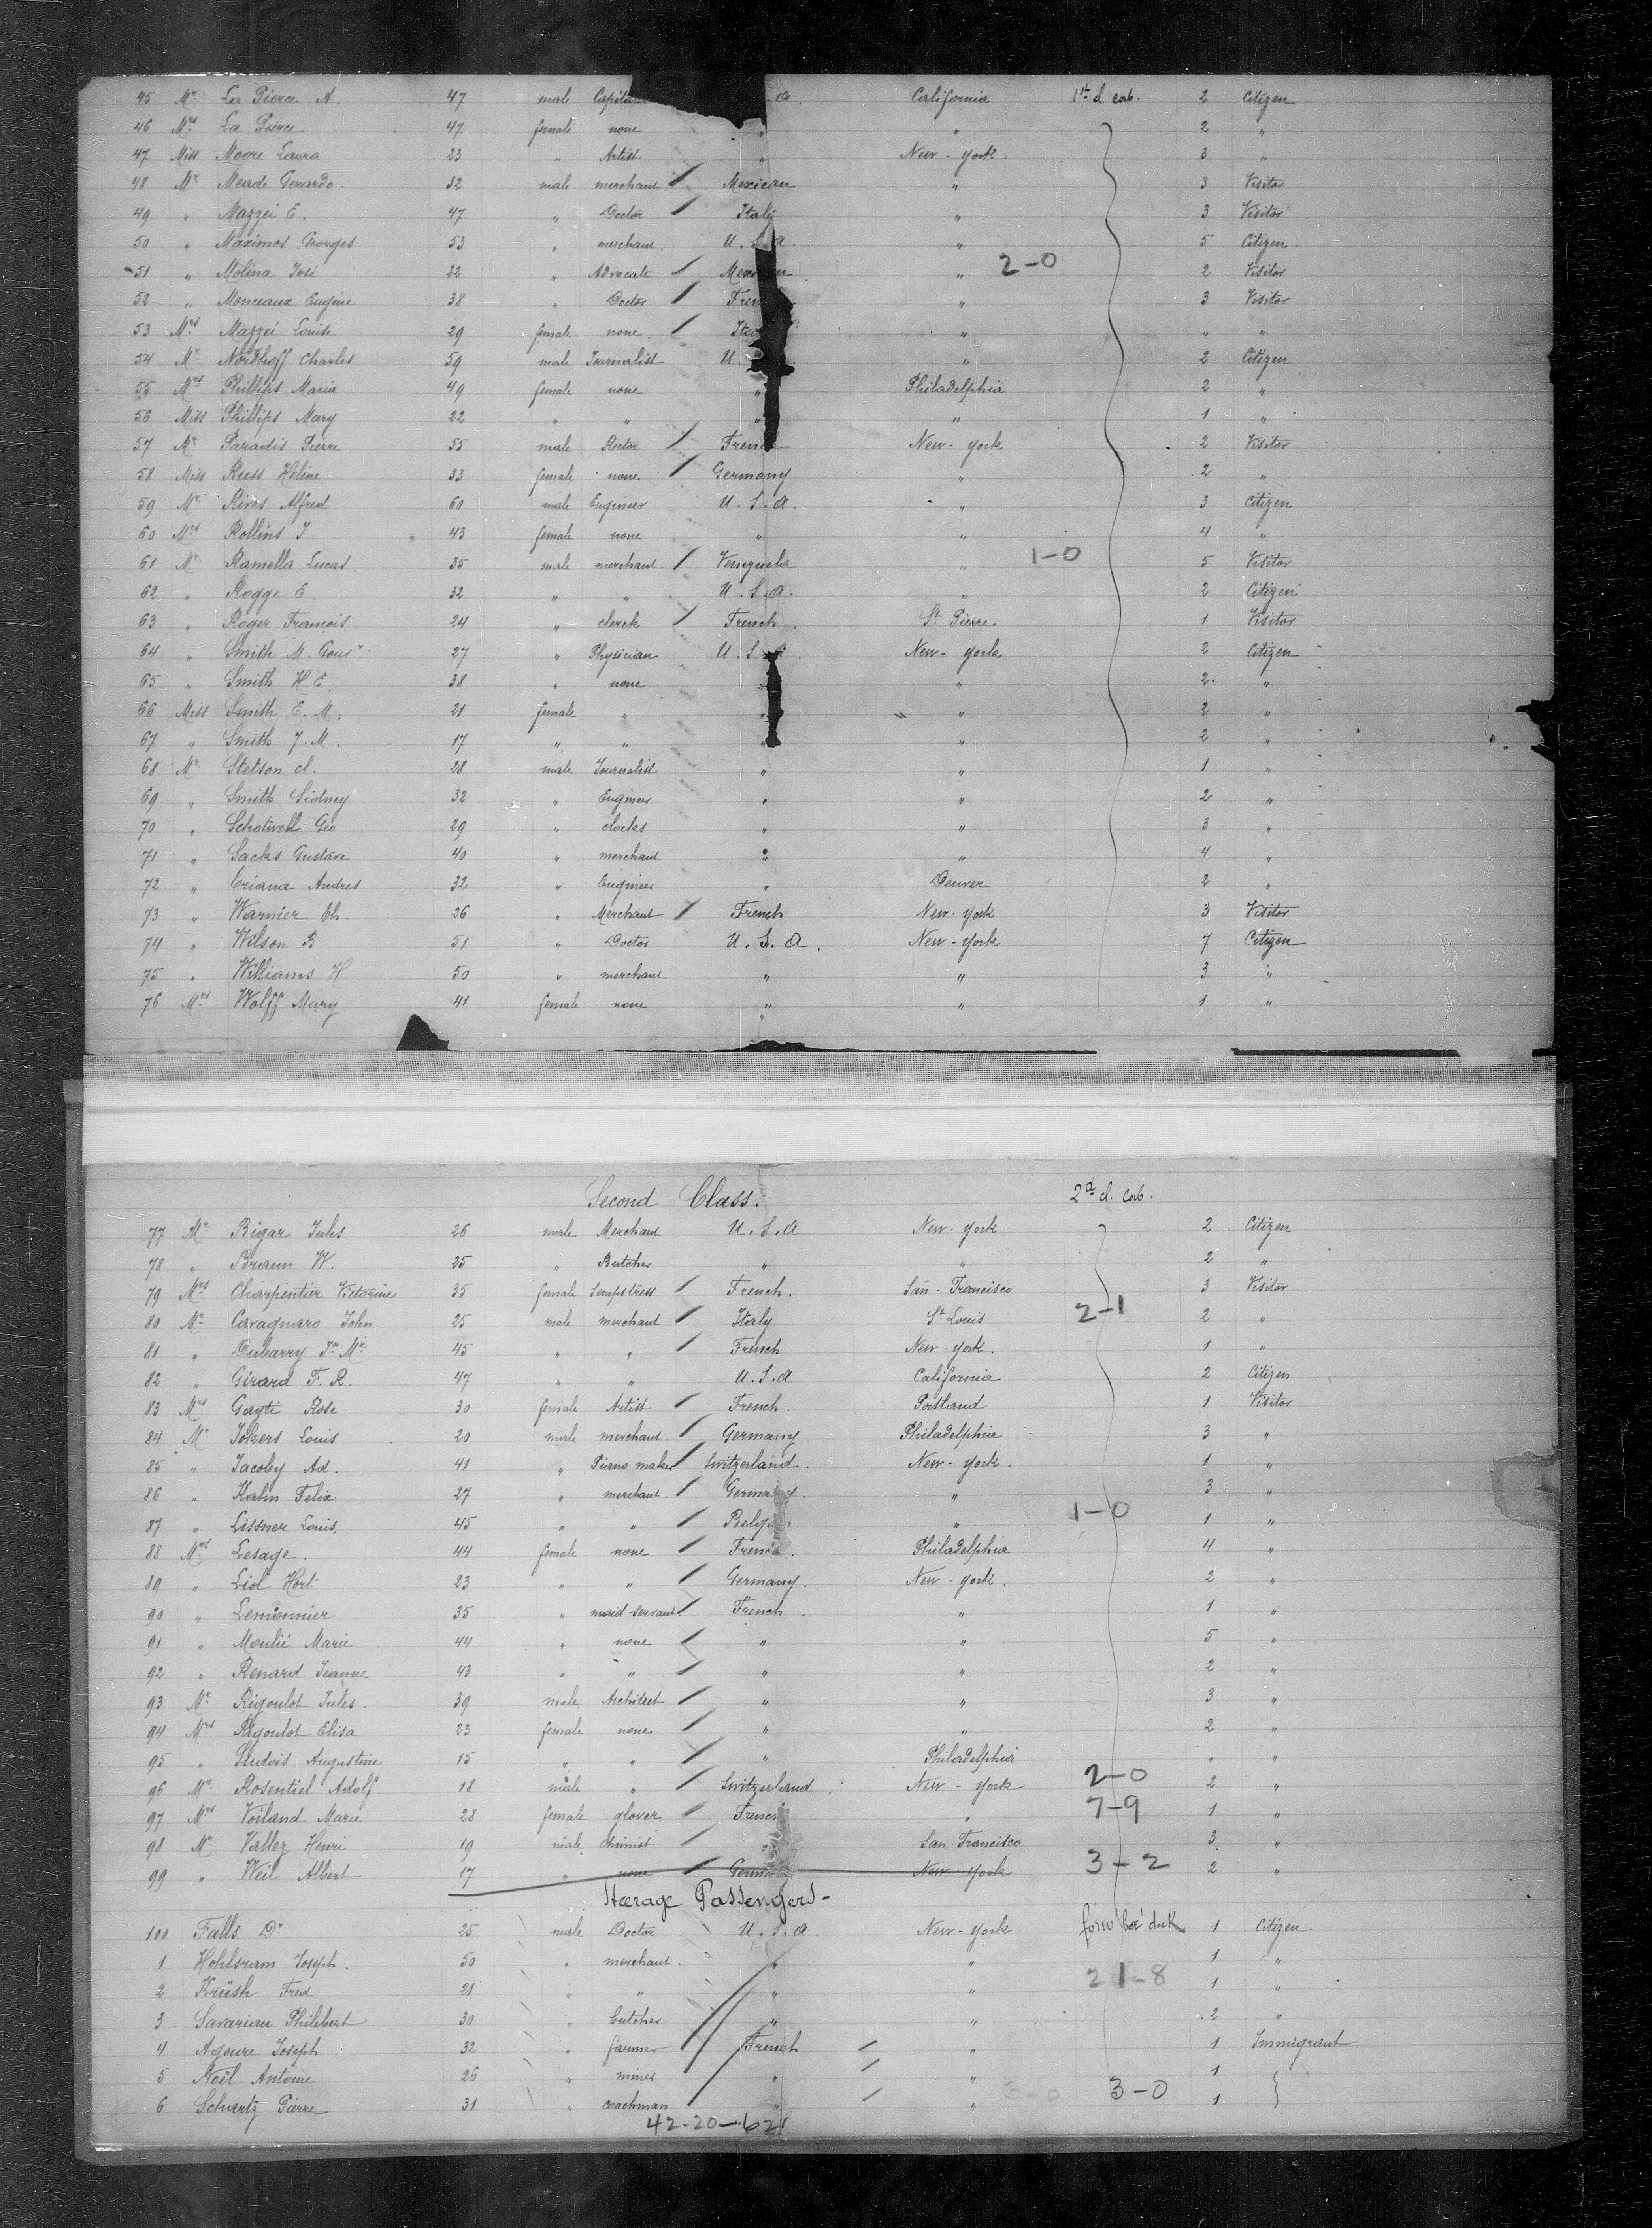 45 Mr La Pierre A. 47 male Capitan a. California 1st cl. cab. 2 Citizen
46 Mrs La Pierre 47 female none " " 2 "
47 Miss Moore Laura 23 " Artist " New-york. 3 "
48 Mr Meade Gerardo. 32 male merchant / Mexican " 3 Visitor
49 " Mazzei E. 47 " Doctor / Italy " 3 Visitor
50 " Maximos Georges 53 " merchant. U.S.a. " 5 Citizen.
51 " Molina José 22 " Advocate / Mexican " 2-0 2 Visitor
52 " Monceaux Eugène 38 " Doctor / Fren " 3 Visitor
53 Mrs Mazzei Louise 29 female none. / Ita " " "
54 Mr Nordhoff Charles 59 male Journalist U. " 2 Citizen
55 Mrs Phillips Maria 49 female none " Philadelphia 2 "
56 Miss Phillips Mary 22 " " " " 1 "
57 Mr Paradis Pierre 55 male Rector / French New-york 2 Visitor
58 Miss Russ Hélène 33 female none. / Germany " 2 "
59 Mr Rives Alfred 60 male Engineer U.S.a. " 3 Citizen
60 Mrs Rollins J. 43 female none " " 4 "
61 Mr Ramella Lucas. 35 male merchant. / Venezuela " 1-0 5 Visitor
62 " Rogge E. 32 " " U.S.a. " 2 Citizen
63 " Roger François 24 " clerck / French. St Pierre 1 Visitor
64 " Smith M. Gour 27 " Physician U.S.a. New-york 2 Citizen
65 " Smith H E. 38 " none " " 2. "
66 Miss Smith E. M. 21 female " " " 2 "
67 " Smith J. M. 17 " " " " 2 "
68 Mr Stetson cl. 28 male Journalist " " 1 "
69 " Smith Sidney 32 " Engineer " " 2 "
70 " Schotwell Geo 29 " clocks " " 3 "
71 " Sacks Gustave 40 " merchant " " 4 "
72 " Eriana Andres 32 " Engineer " Denver 2 "
73 " Warnier Ch. 26 " Merchant / French New-york 3 Visitor
74 " Wilson B 51 " Doctor U.S.a. New-york 7 Citizen
75 " Williams H 50 " merchant " " 3 "
76 Mrs Wolff Mary 41 female none " " 1 "
Second Class. 2d cl. cab.
77 Mr Bigar Jules 26 male Merchant U.S.a New-york 2 Citizen
78 " Braun W. 25 " Butcher " " 2 "
79 Mrs Charpentier Victorine 35 female Sempstress / French. San-Francisco 3 Visitor
80 Mr Cavagnaro John 25 male merchant / Italy St Louis 2-1 2 "
81 " Dubarry Jn Me 45 " " / French New-york. 1 "
82 " Girard F. R. 47 " " U.S.a California 2 Citizen
83 Mrs Gayte Rose 30 female Artist / French. Portland 1 Visitor
84 Mr Jokers Louis 20 male merchant / Germany Philadelphia 3 "
85 " Jacoby Ad. 41 " Piano maker / Switzerland. New-york. 1 "
86 " Kahn Felix 27 " merchant. / Germany. " 3 "
87 " Lissner Louis. 45 " " / Belg " 1-0 1 "
88 Mrs Lesage. 44 female none / French. Philadelphia 4 "
89 " Liol Hort 23 " " / Germany. New-york. 2 "
90 " Lemonnier 35 " maid-servant / French " 1 "
91 " Moulié Marie 44 " none / " " 5 "
92 " Renard Jeanne 43 " " / " " 2 "
93 Mr Rigoulot Jules. 39 male Architect / " " 3 "
94 Mrs Rigoulot Elisa 23 female none / " " 2 "
95 " Augustine 15 " " / " Philadelphia " "
96 Mr Rosentiel Adolf. 18 male " / Switzerland. New-york 2-0 2 "
97 Mrs Voiland Marie 28 female glover / French " 7-9 1 "
98 Mr Vallez Henri 19 male chimist / " San-Francisco 3 "
99 " Weil Albert 17 " none / Germany New-york 3-2 2 "
Steerage Passengers-
100 Falls Dr 25 male Doctor U.S.a. New-york forw'bet'deck 1 Citizen
1 Hohlsram Joseph. 50 " merchant. " " 1 "
2 Krüsh Fred 21 " " " " 21-8 1 "
3 Savarian Philibert 30 " butcher " " 2 "
4 Agoure Joseph 32 " farmer French / " 1 Immigrant
5 Noël Antoine 26 " miner " / " 1
6 Schvartz Pierre 31 " coachman " / " 3-0 3-0 1
42-20-62